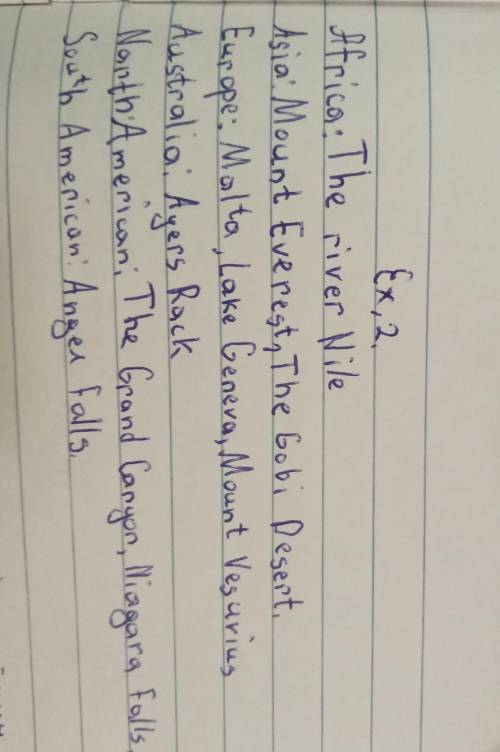 Ex, 2.
Africa: The river Nile
Asia: Mount Everest, The Gobi Desert.
Europe: Malta, Lake Geneva, Mount Vesurius
Australia: Ayers Rack
Narth American: The Grand Canyon, Niagara falls.
South American: Anger falls.